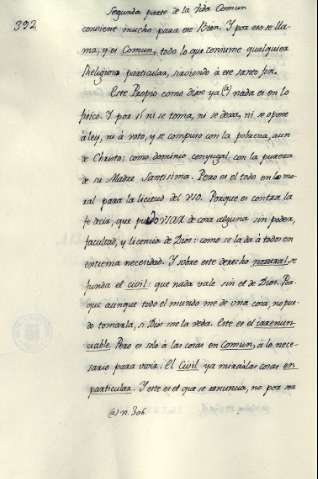 Segunda parte de la Vida Comun
392
conviene mucho para ese Bien. Y por eso se lla-
ma, y es Comun, todo lo que consume qualquiera
Religioso particular, haciendo à ese santo fin.
Este Propio como dixe ya (a) nada es en lo
fisico. Y por sì ni se toma, ni se dexa, ni se opone
à ley, ni à voto, y se compuso con la pobreza, aun
de Christo: como dominio conyugal con la pureza
de su Madre Santisima. Pero es el todo en lo mo-
ral para la licitud del uso. Porque es contra la
fe decir, que puedo usar de cosa alguna sin poder,
facultad, y licencia de Dios: como se la dà à todos en
extrema necesidad. Y sobre este derecho natural se
funda el civil: que nada vale sin el de Dios. Por-
que aunque todo el mundo me dè una cosa, no pue-
do tomarla, si Dios me la veda. Este es el irrenun-
ciable. Pero es solo à las cosas en Comun, à lo nece-
sario para vivir. El Civil ya mira à las cosas en
particular. Y este es el que se renuncia, no por
(a) n. 306.